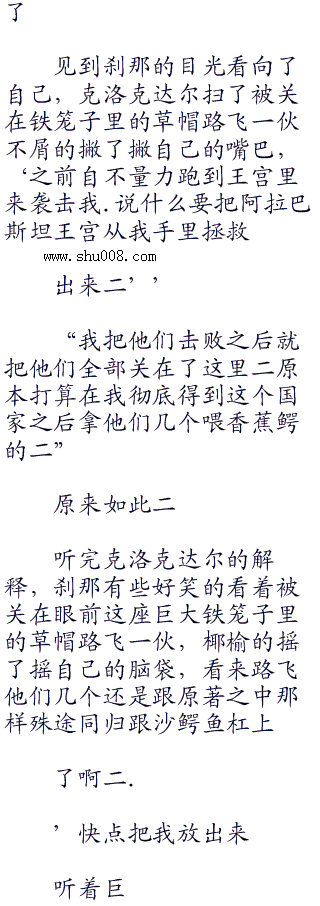 了
见到刹那的目光看向了
自己，克洛克达尔扫了被关
在铁笼子里的草帽路飞一伙
不屑的撇了撇自己的嘴巴，
‘之前自不量力跑到王宫里
来袭击我.说什么要把阿拉巴
斯坦王宫从我手里拯救
www.shu008.com
出来二’’
“我把他们击败之后就
把他们全部关在了这里二原
本打算在我彻底得到这个国
家之后拿他们几个喂香蕉鳄
的二”
原来如此二
听完克洛克达尔的解
释，刹那有些好笑的看着被
关在眼前这座巨大铁笼子里
的草帽路飞一伙，椰榆的摇
了摇自己的脑袋，看来路飞
他们几个还是跟原著之中那
样殊途同归跟沙鳄鱼杠上
了啊二.
’快点把我放出来
听着巨